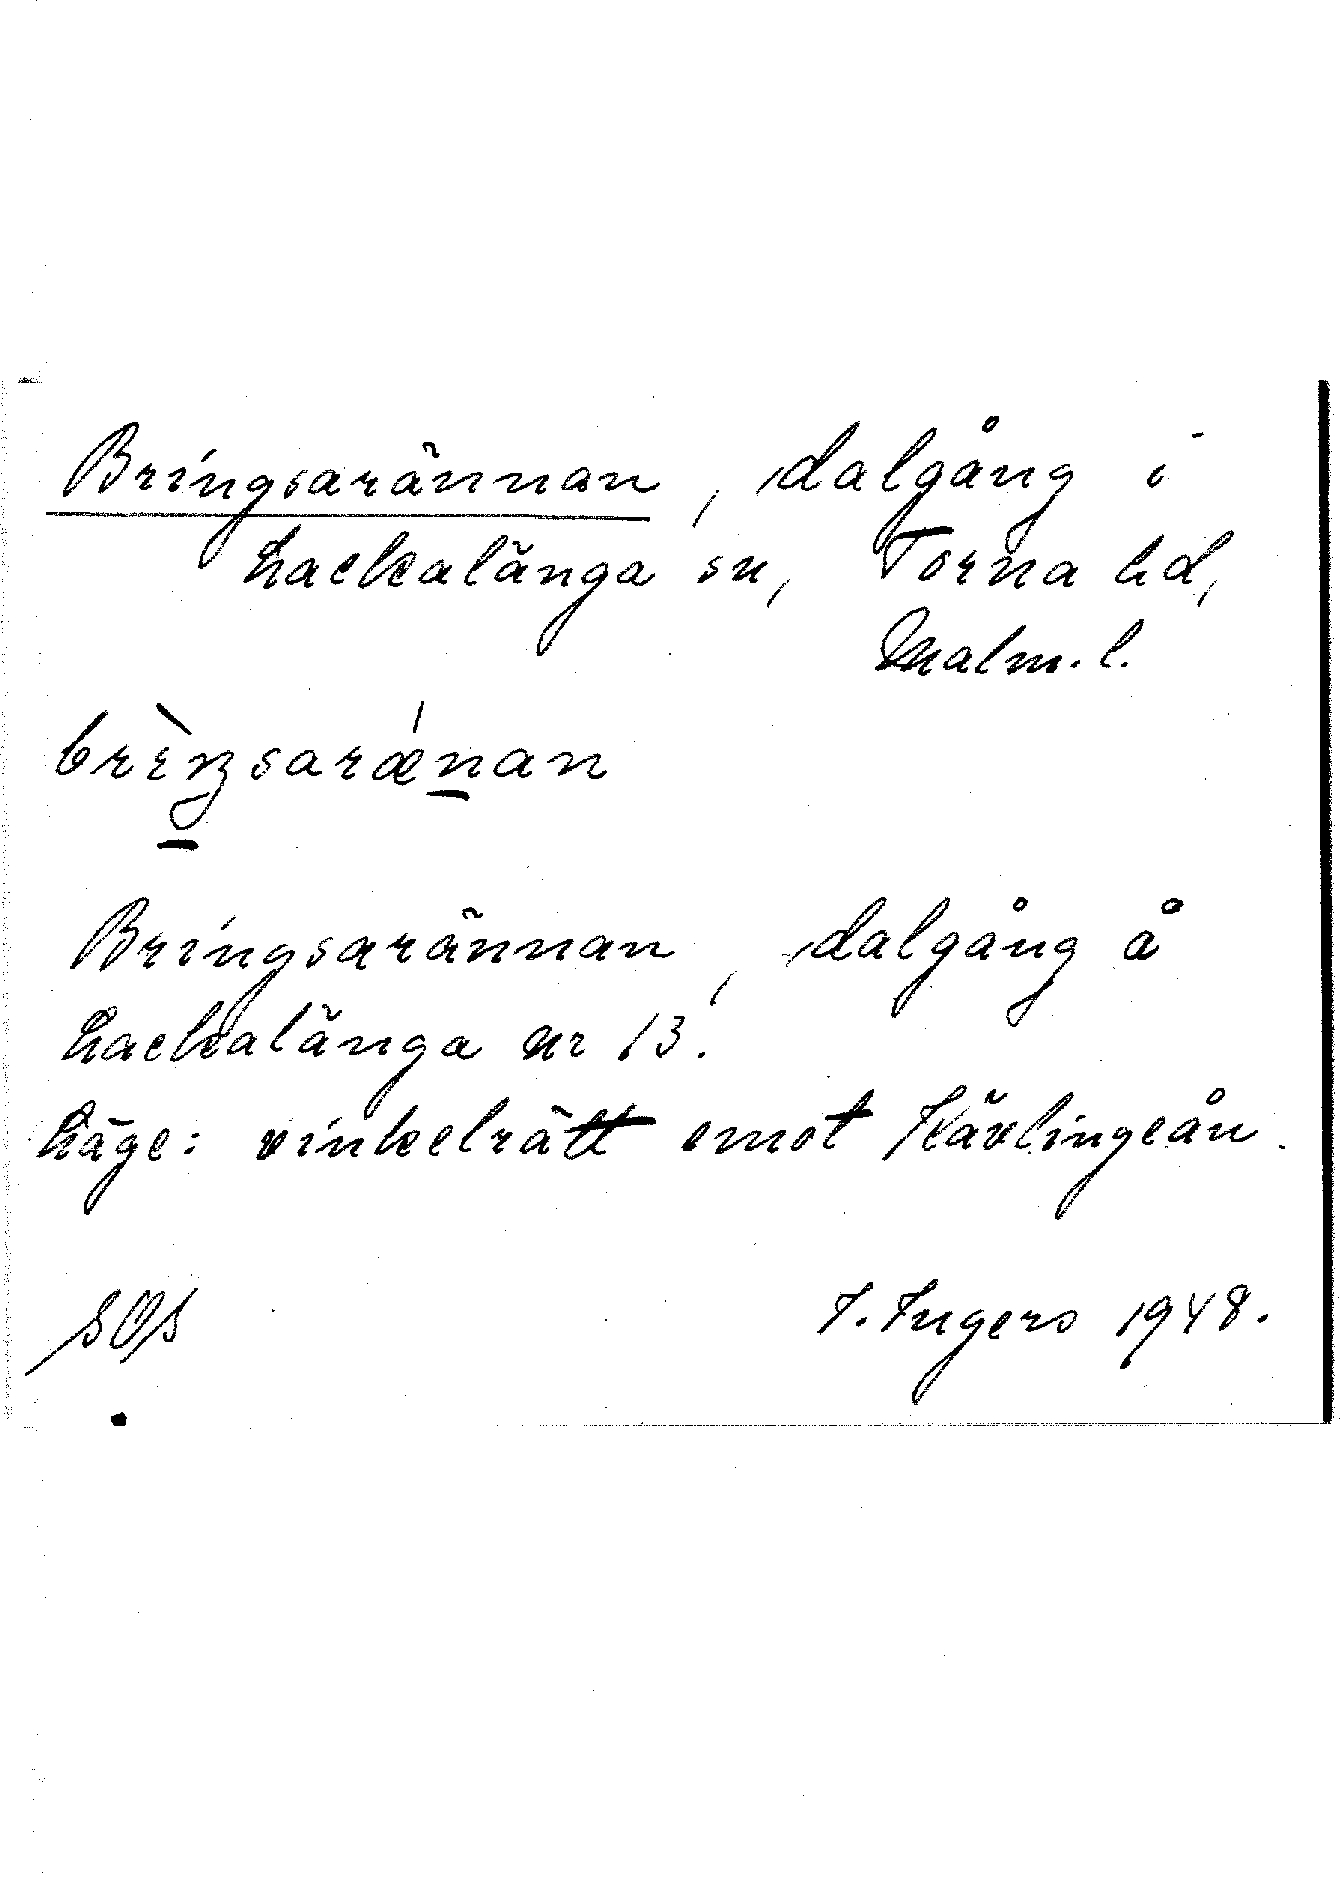 Bringsarännan, dalgång i
Lackalänga sn, Torna hd,
Malm. l.
brìŋsarǽnan
Bringsarännan, dalgång å
Lackalänga nr 13.
Läge: vinkelrätt emot Kävlingeån.
I. Ingers 1948.